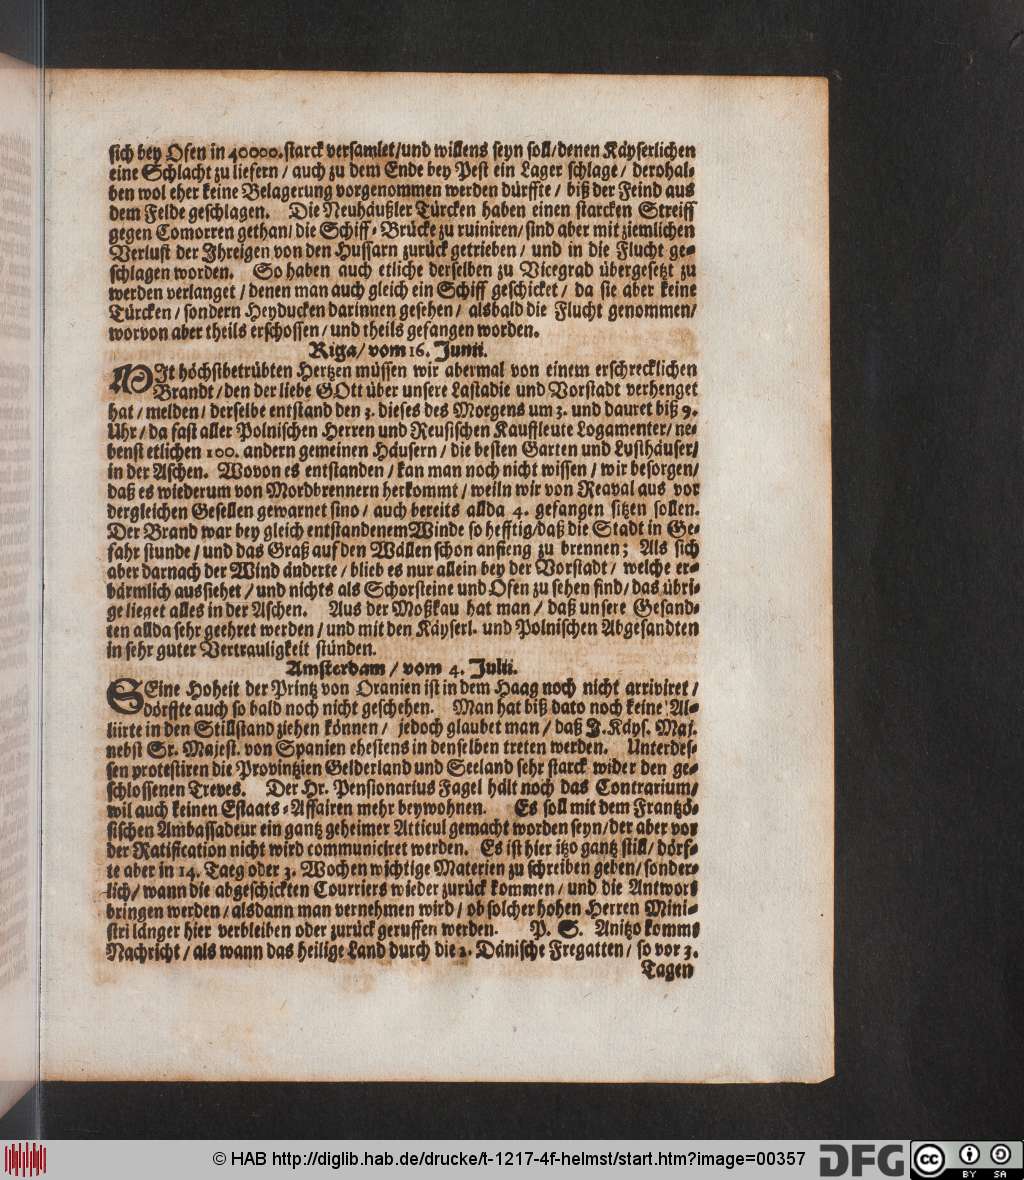 sich bey Ofen in 40000. starck versamlet/und willens seyn soll/denen Käyserlichen
eine Schlacht zu liefern / auch zu dem Ende bey Pest ein Lager schlage / derohal-
ben wol eher keine Belagerung vorgenommen werden dürffte / biß der Feind aus
dem Felde geschlagen. Die Neuhäußler Türcken haben einen starcken Streiff
gegen Comorren gethan/ die Schiff-Brücke zu ruiniren/ sind aber mit ziemlichen
Verlust der Ihreigen von den Hussarn zurück getrieben / und in die Flucht ge-
schlagen worden. So haben auch etliche derselben zu Vicegrad übergesetzt zu
werden verlanget / denen man auch gleich ein Schiff geschicket / da sie aber keine
Türcken / sondern Heyducken darinnen gesehen / alsbald die Flucht genommen/
worvon aber theils erschossen / und theils gefangen worden.
Riga/ vom 16. Junii.
MIt höchstbetrübten Hertzen müssen wir abermal von einem erschrecklichen
Brandt / den der liebe GOtt über unsere Lastadie und Vorstadt verhenget
hat / melden / derselbe entstand den 3. dieses des Morgens um 3. und dauret biß 9.
Uhr / da fast aller Polnischen Herren und Reusischen Kauffleute Logamenter/ ne-
benst etlichen 100. andern gemeinen Häusern / die besten Garten und Lusthäuser/
in der Aschen. Wovon es entstanden / kan man noch nicht wissen / wir besorgen/
daß es wiederum von Mordbrennern herkommt / weiln wir von Reaval aus vor
dergleichen Gesellen gewarnet sind / auch bereits allda 4. gefangen sitzen sollen.
Der Brand war bey gleich entstandenem Winde so hefftig/daß die Stadt in Ge-
fahr stunde / und das Graß auf den Wällen schon anfieng zu brennen; Als sich
aber darnach der Wind änderte / blieb es nur allein bey der Vorstadt / welche er-
bärmlich aussiehet / und nichts als Schorsteine und Ofen zu sehen sind/ das übri-
ge lieget alles in der Aschen. Aus der Moßkau hat man / daß unsere Gesand-
ten allda sehr geehret werden / und mit den Käyserl. und Polnischen Abgesandten
in sehr guter Vertrauligkeit stünden.
Amsterdam / vom 4. Julii.
SEine Hoheit der Printz von Oranien ist in dem Haag noch nicht arriviret /
dörffte auch so bald noch nicht geschehen. Man hat biß dato noch keine Al-
liirte in den Stillstand ziehen können / jedoch glaubet man / daß J. Käys. Maj.
nebst Sr. Majest. von Spanien ehestens in denselben treten werden. Unterdes-
sen protestiren die Provintzien Gelderland und Seeland sehr starck wider den ge-
schlossenen Treves. Der Hr. Pensionarius Fagel hält noch das Contrarium/
wil auch keinen Estaats-Affairen mehr beywohnen. Es soll mit dem Frantzö-
sischen Ambassadeur ein gantz geheimer Atticul gemacht worden seyn/der aber vor
der Ratification nicht wird communiciret werden. Es ist hier itzo gantz still/ dörf-
te aber in 14. Taeg oder 3. Wochen wichtige Materien zu schreiben geben/ sonder-
lich/ wann die abgeschickten Courriers wieder zurück kommen / und die Antwort
bringen werden / alsdann man vernehmen wird / ob solcher hohen Herren Mini-
stri länger hier verbleiben oder zurück geruffen werden. P. S. Anitzo kommt
Nachricht / als wann das heilige Land durch die 2. Dänische Fregatten / so vor 3.
Tagen
© HAB http://diglib.hab.de/drucke/t-1217-4f-helmst/start.htm?image=00357
DFG
cc
BY SA